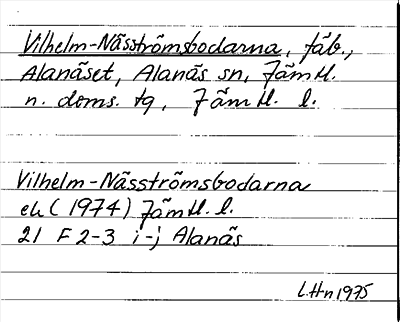 Vilhelm-Näsströmsbodarna, fäb.,
Alanäset, Alanäs sn, Jämtl.
n. doms. tg, Jämtl. l.
Vilhelm-Näsströmsbodarna
ek (1974) Jämtl. l.
21 F 2-3 i-j Alanäs
L.Hn 1975